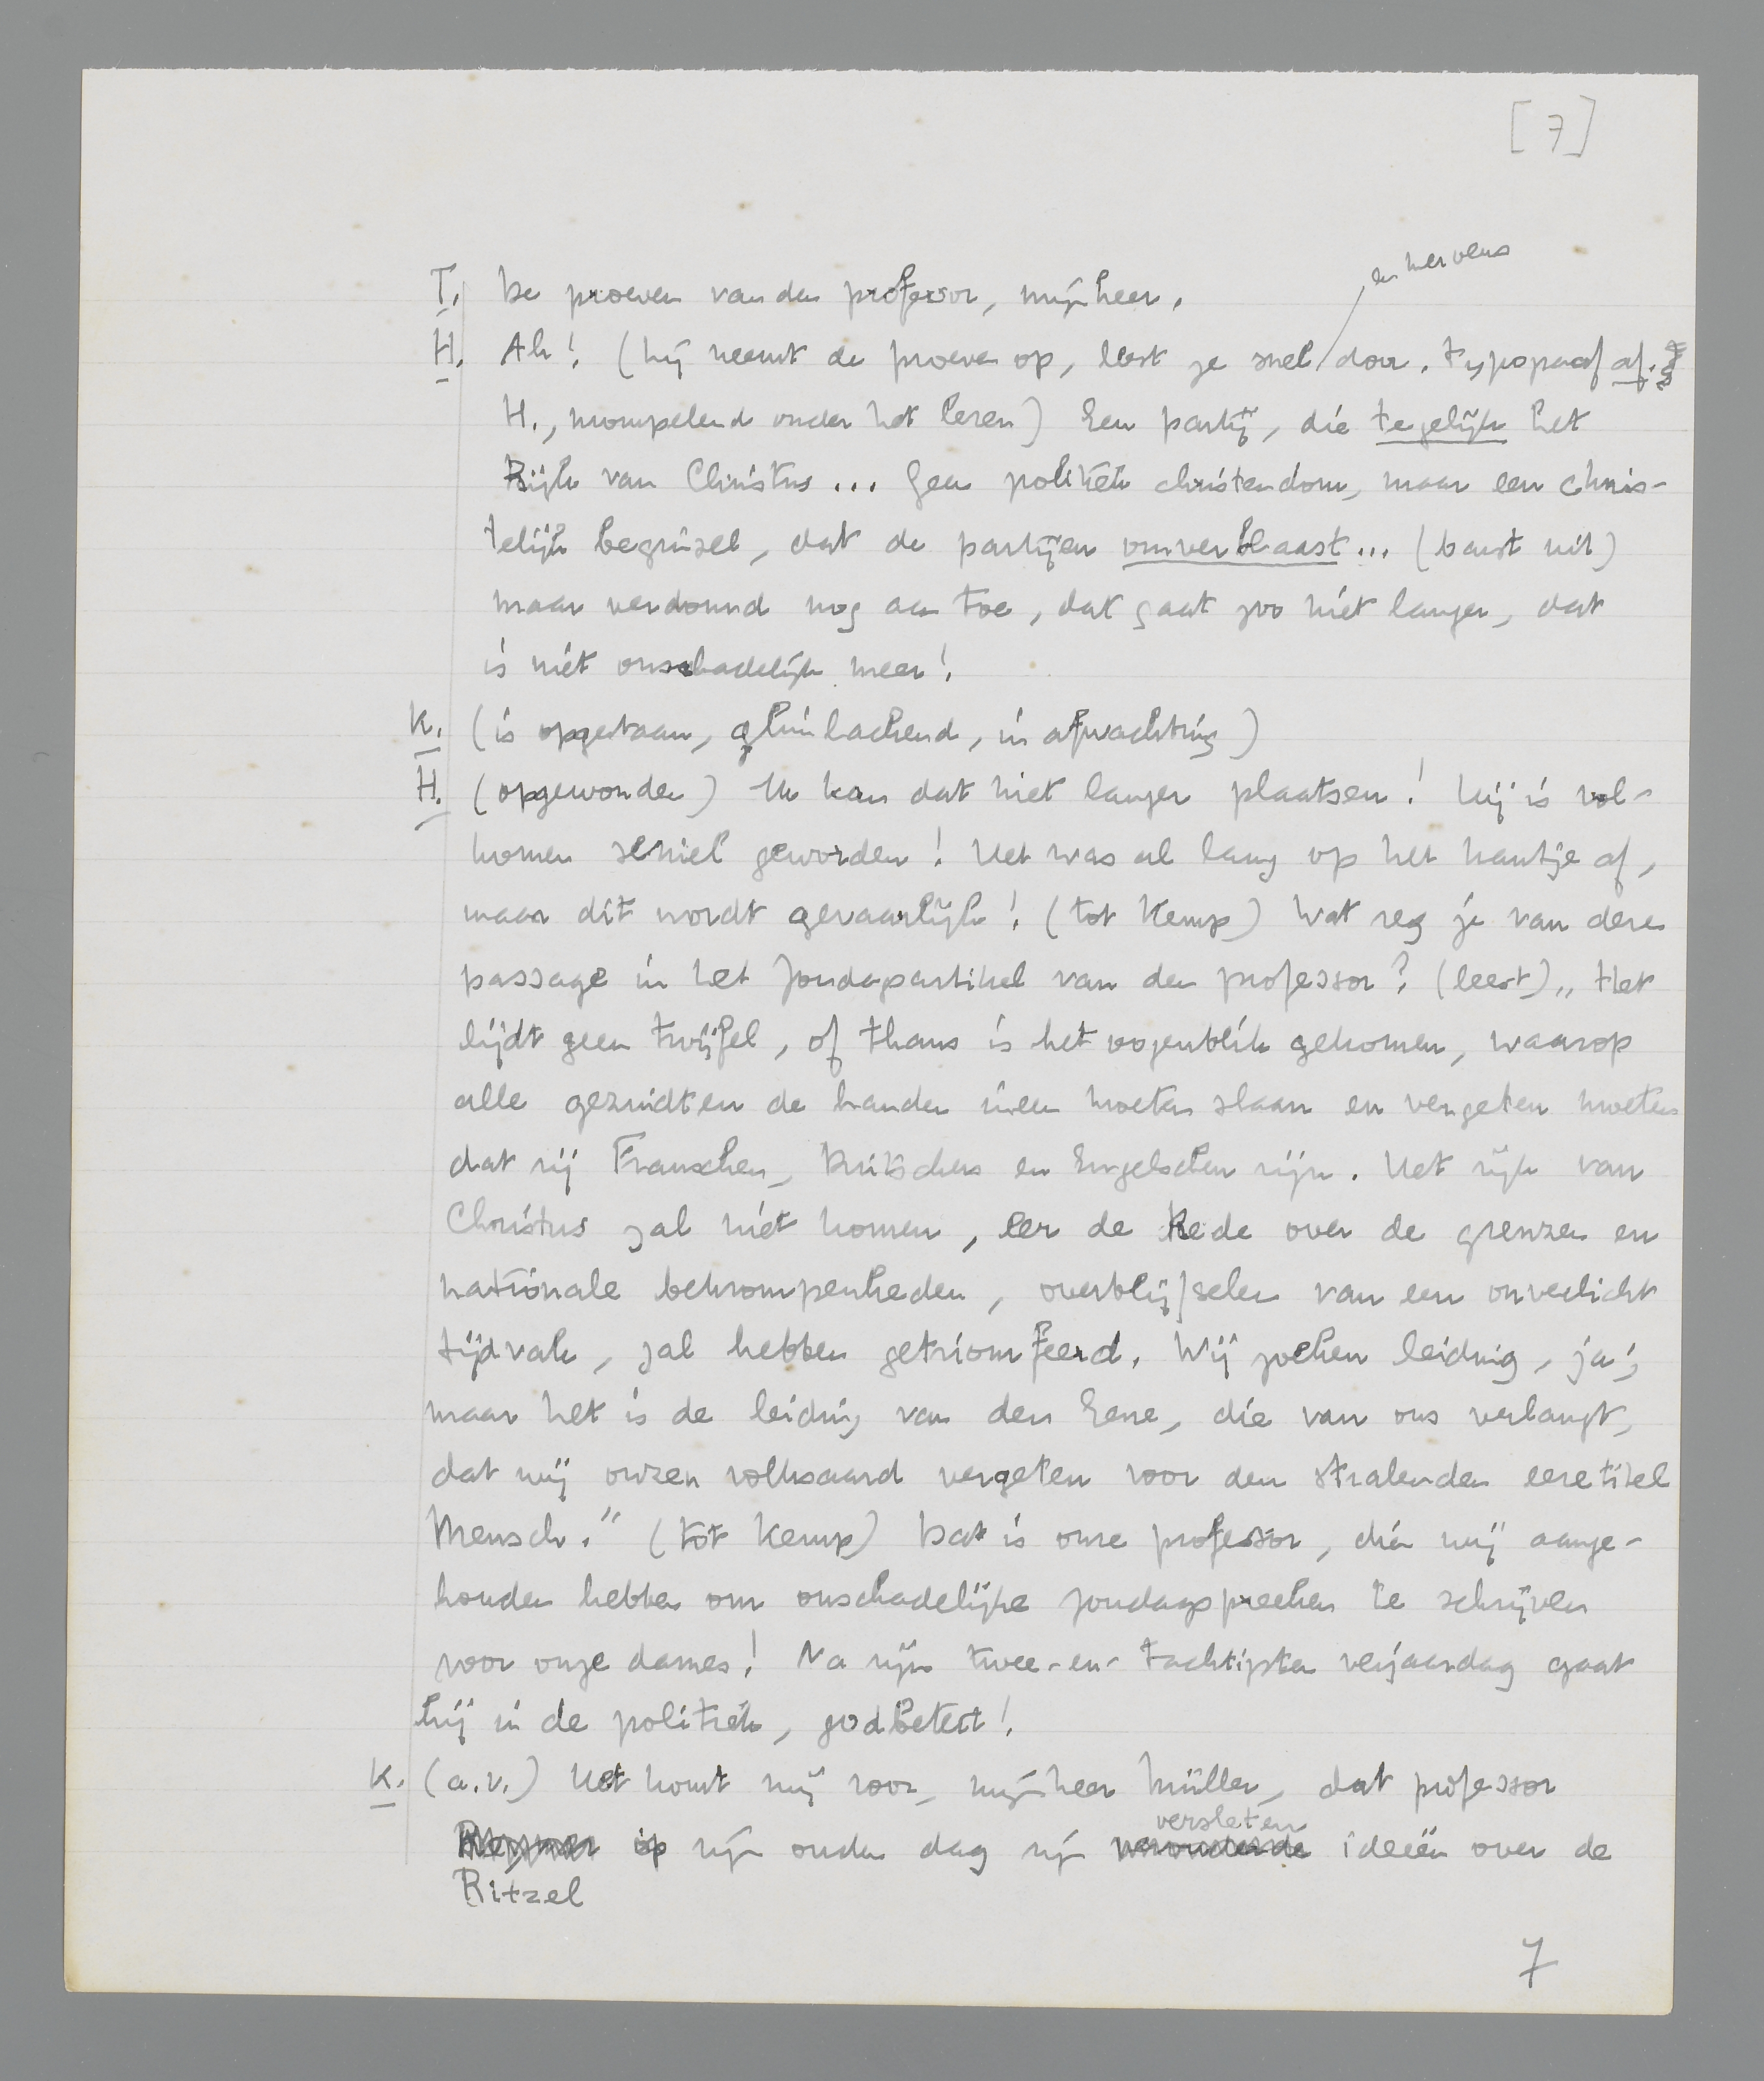 [7]
en nerveus
T. De proeven van den professor, mijnheer.
H. Ah! (hij neemt de proeven op, leest ze snel door. Typograaf af.
H., mompelend onder het lezen) Een partij, die tegelijk het
Rijk van Christus... Geen politiek christendom, maar een chris-
telijk beginsel, dat de partijen omverblaast... (barst uit)
maar verdomd nog aan toe, dat gaat zoo niet langer, dat
is niet onschadelijk meer!
K. (is opgestaan, glimlachend, in afwachting)
H. (opgewonden) Ik kan dat niet langer plaatsen! Hij is vol-
komen seniel geworden! Het was al lang op het kantje af,
maar dit wordt gevaarlijk! (tot Kemp) Wat zeg je van deze
passage in het Zondagsartikel van den professor? (leest) „Het
lijdt geen twijfel, of thans is het oogenblik gekomen, waarop
alle gezindten de handen ineen moeten slaan en vergeten moeten
dat zij Franschen, Duitschers en Engelschen zijn. Het rijk van
Christus zal niet komen, eer de Rede over de grenzen en
nationale bekrompenheden, overblijfselen van een onverlicht
tijdvak, zal hebben getriomfeerd. Wij zoeken leiding, ja;
maar het is de leiding van den Eene, die van ons verlangt,
dat wij onzen volksaard vergeten voor den stralenden eeretitel
Mensch.” (tot Kemp) Dat is onze professor, dien wij aange-
houden hebben om onschadelijke zondagspreeken te schrijven
voor onze dames! Na zijn twee-en-tachtigsten verjaardag gaat
hij in de politiek, godbetert!
K. (a.v.) Het komt mij voor, mijnheer Müller, dat professor
versleten
op zijn ouden dag zijn verouderde ideeën over de
Ritzel
7